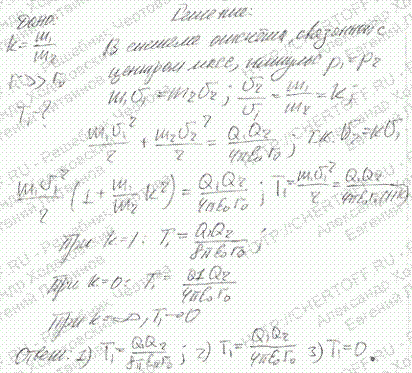 Дано:
Решение:
k = m₁/m₂
r >> r₀
T₁ - ?
В системе отсчёта, связанной с
центром масс, импульс p₁ = p₂
m₁υ₁ = m₂υ₂ ; υ₂/υ₁ = m₁/m₂ = k;
m₁υ₁²/2 + m₂υ₂²/2 = Q₁Q₂/4πε₀r₀ ; т.к. υ₂ = kυ₁
m₁υ₁²/2 (1 + m₂/m₁ k²) = Q₁Q₂/4πε₀r₀ ; T₁ = m₁υ₁²/2 = Q₁Q₂/4πε₀r₀(1+k)
При k=1: T₁ = Q₁Q₂/8πε₀r₀ ;
При k=0: T₁ = Q1Q₂/4πε₀r₀
При k=∞, T₁→0
Ответ: 1) T₁ = Q₁Q₂/8πε₀r₀ ; 2) T₁ = Q₁Q₂/4πε₀r₀ 3) T₁=0.